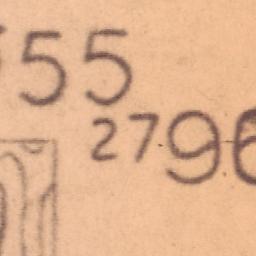 55
2796